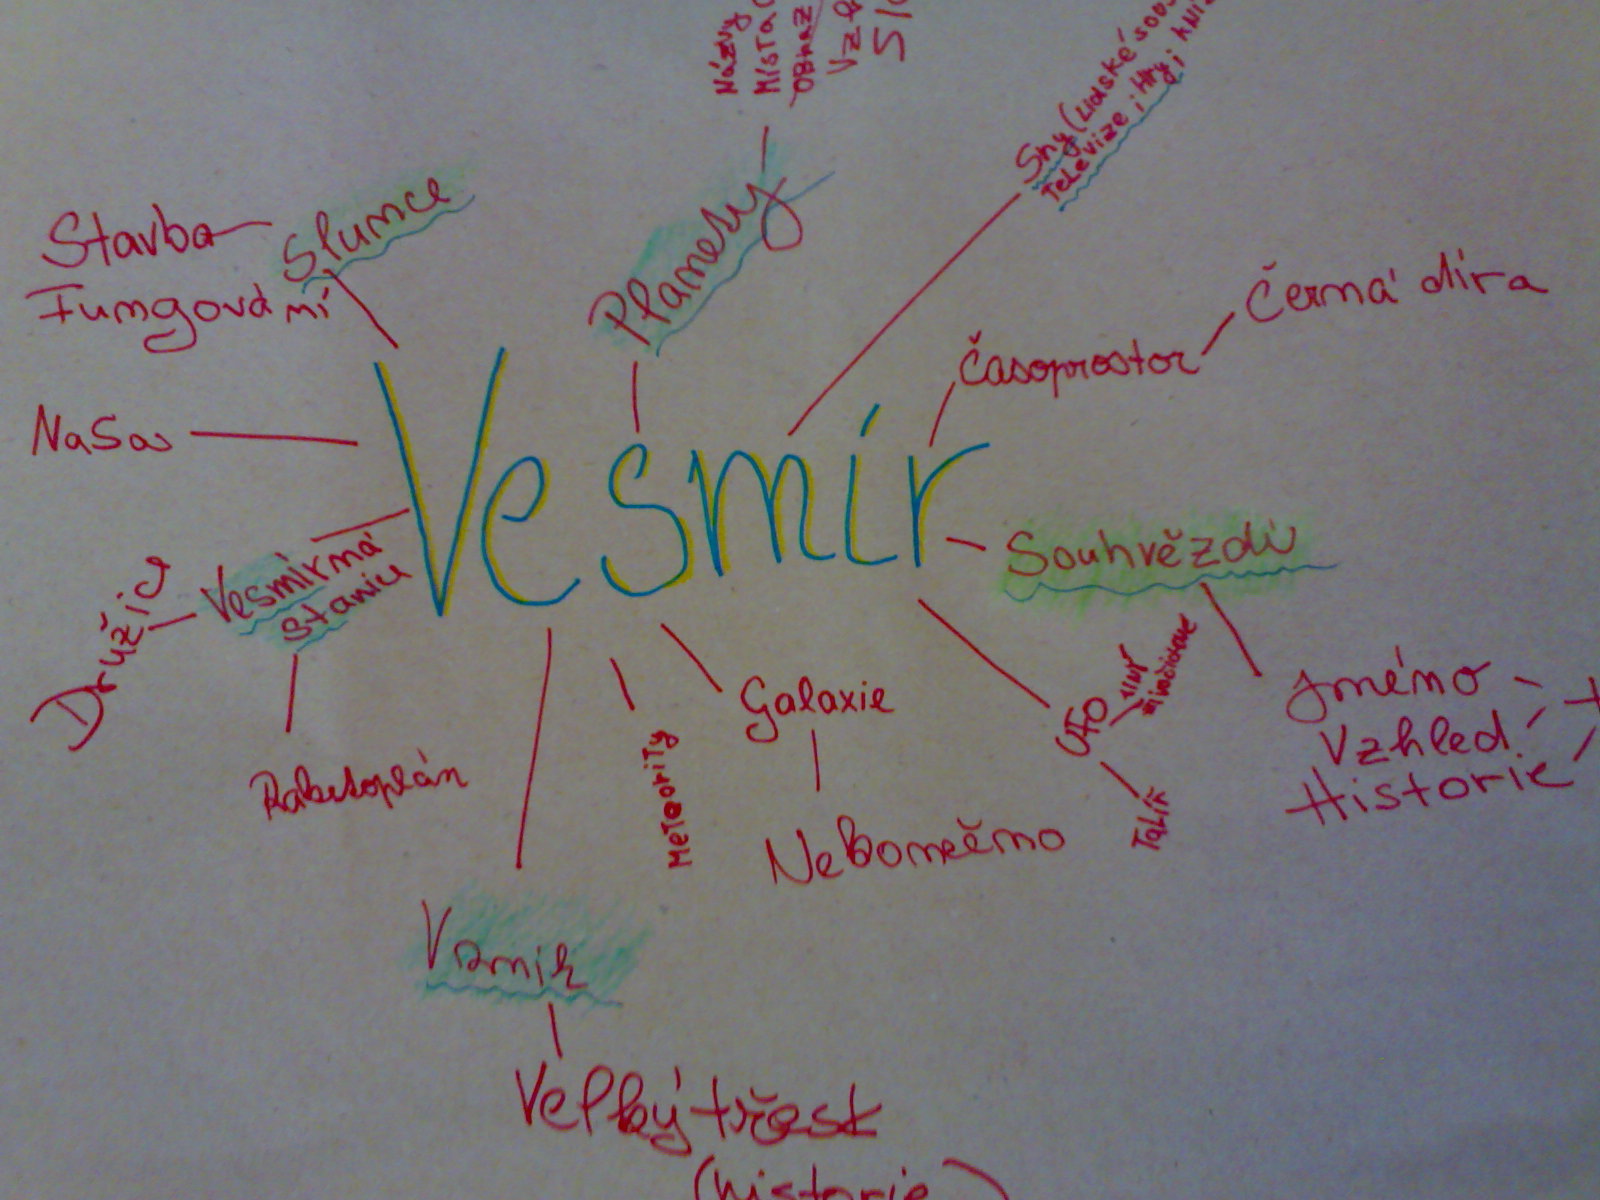 Názvy
Místa
Obraz
Sny (Lidské
Televize; Hry;
Stavba
Slunce
Fungování
Planety
Černá díra
Časoprostor
NaSa
Vesmír
Souhvězdí
Družice
Vesmírná
stanice
UFO
jiné
civilizace
Talíř
Jméno
Vzhled
Historie
Galaxie
Meteority
Raketoplán
Nekonečno
Vznik
Velký třesk
(historie)